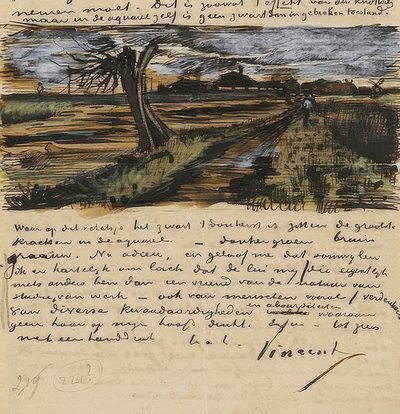 nemen moet. Dit is zoowat 't effekt van den knotwilg
maar in de aquarel zelf is geen zwart dan in gebroken toestand.
Waar op dit schetsje het zwart 't donkerst is zitten de grootste
krachten in de aquarel – donkergroen bruin
graauw. Nu adieu, en geloof me dat somwijlen
ik er hartelijk om lach dat de lui mij (die eigentlijk
niets anders ben dan een vriend van de natuur van
studie van werk – ook van menschen vooral) verdenken
van diverse kwaadaardigheden en absurditeiten waaraan
geen haar op mijn hoofd denkt. Enfin – tot ziens
met een handdruk t. à t. Vincent